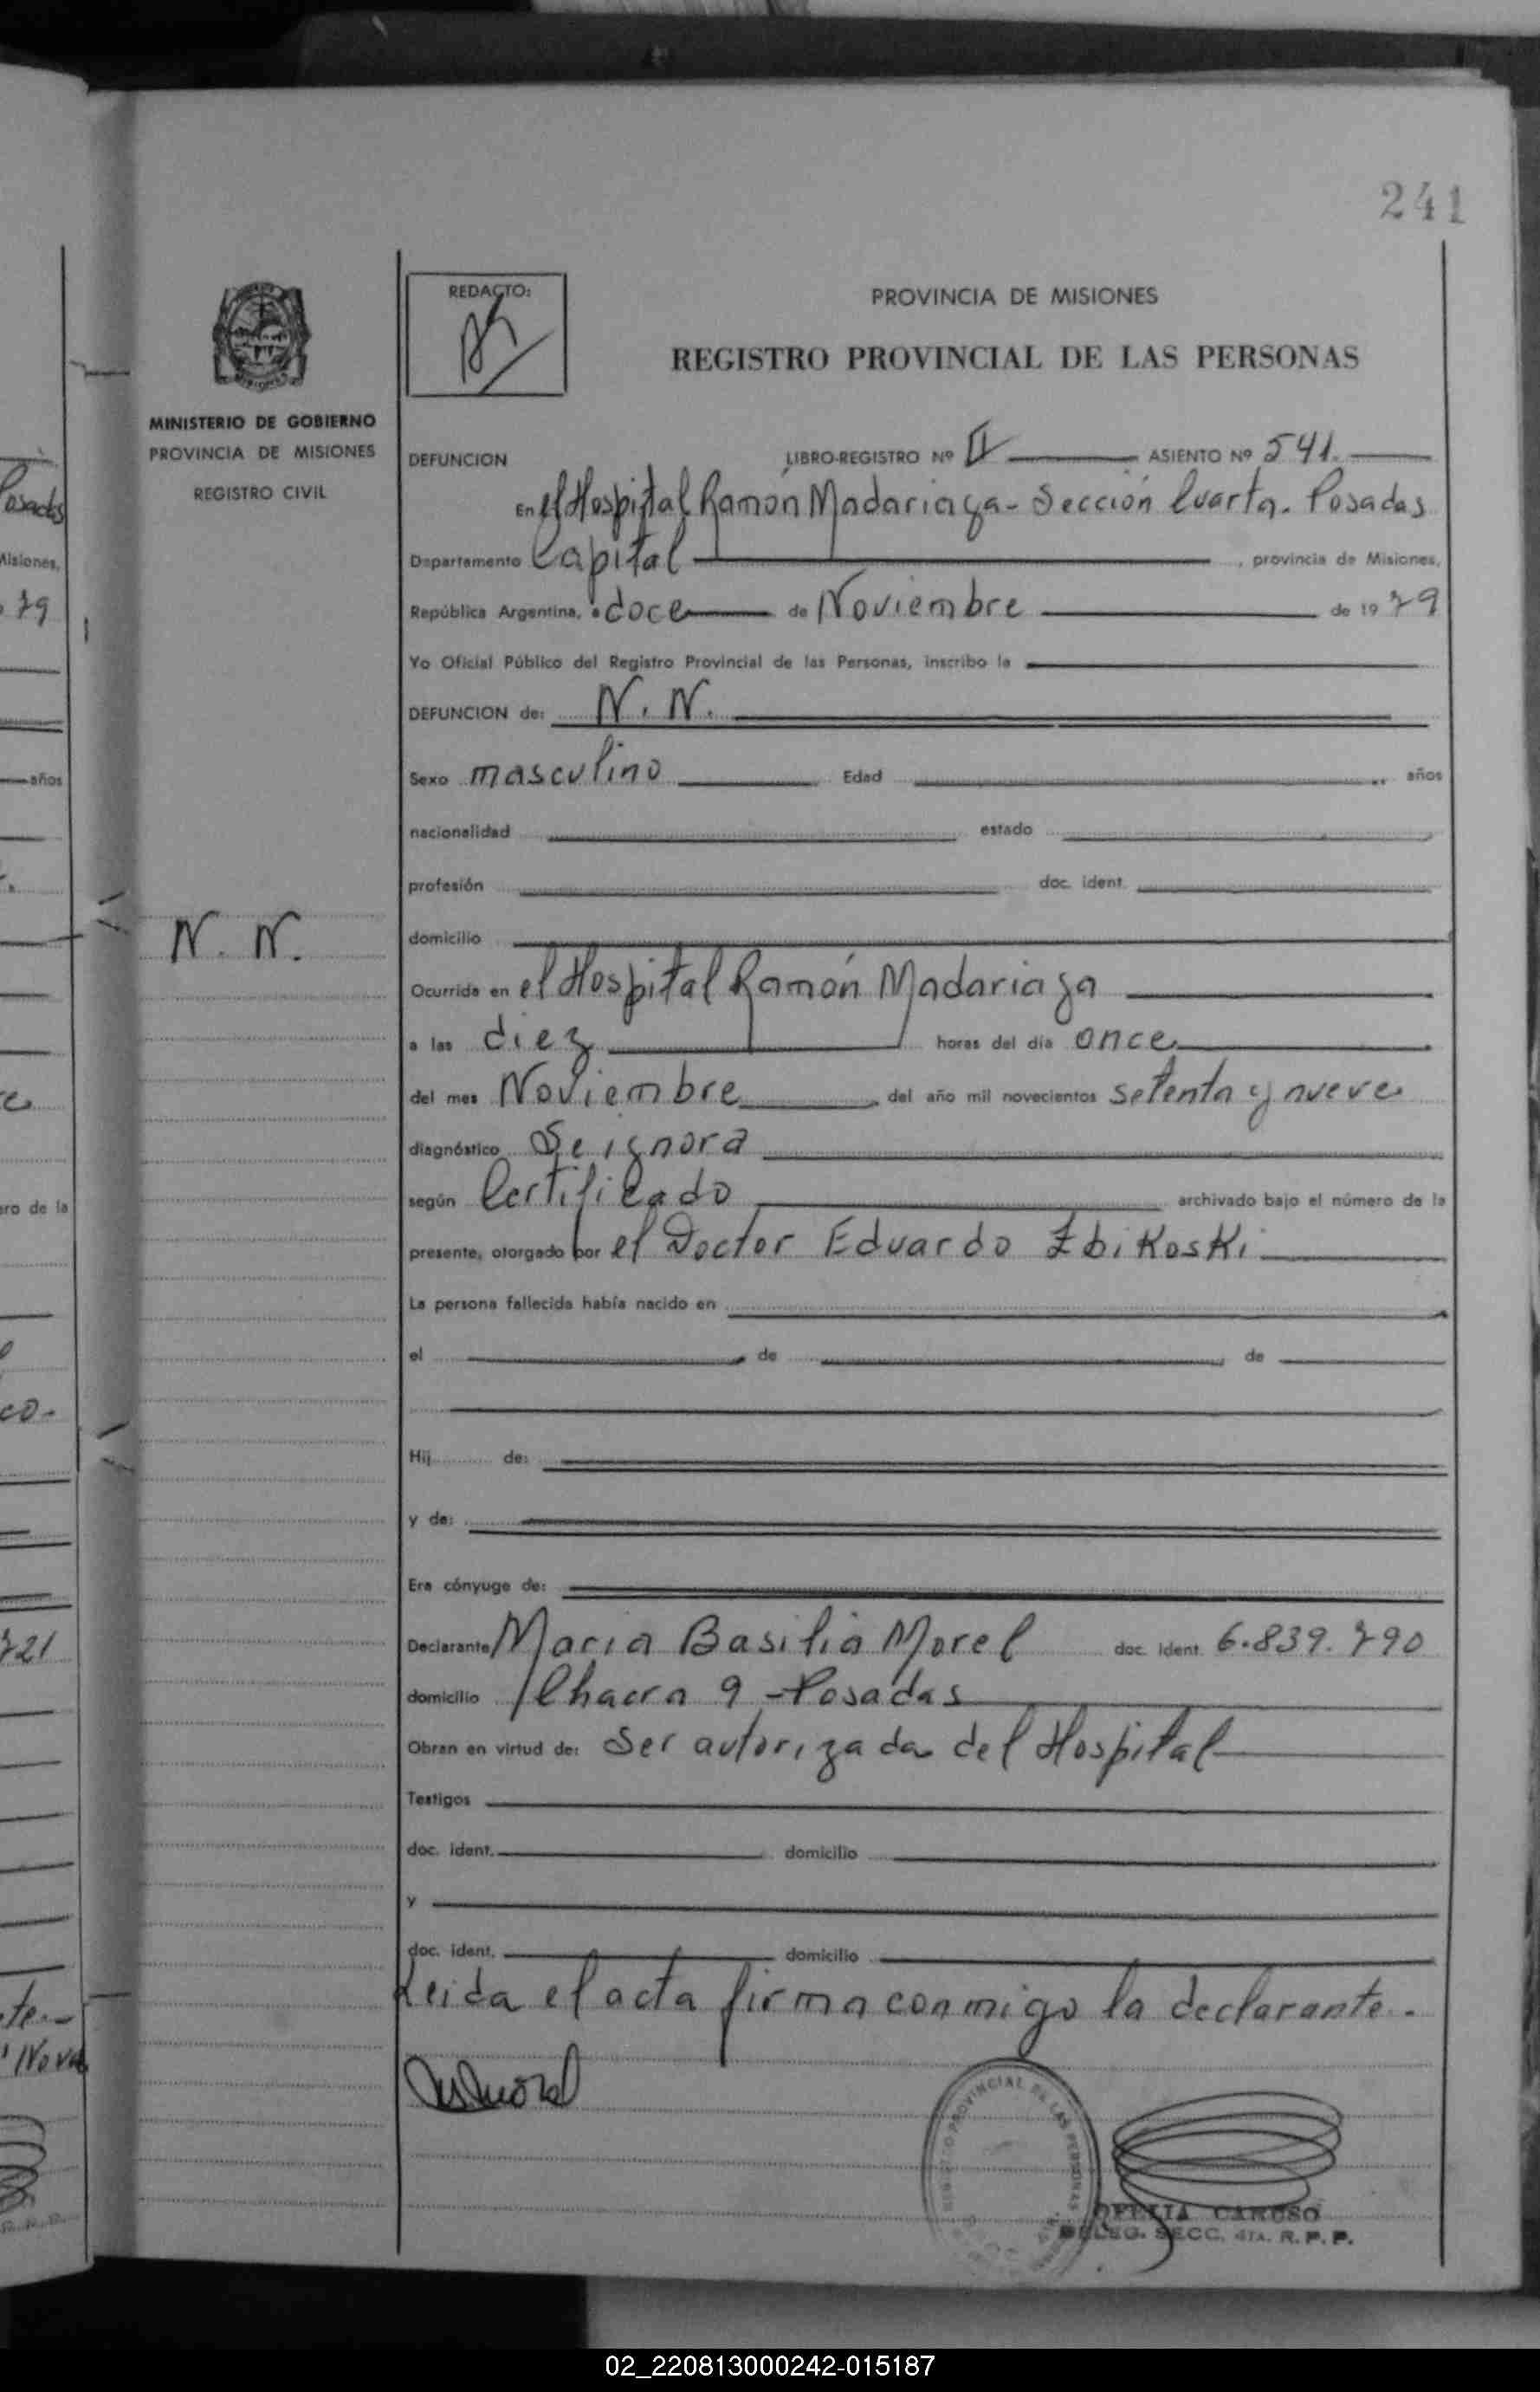 241
REDACTO:
PROVINCIA DE MISIONES
REGISTRO PROVINCIAL DE LAS PERSONAS
MINISTERIO DE GOBIERNO
PROVINCIA DE MISIONES
REGISTRO CIVIL
DEFUNCION LIBRO-REGISTRO Nº II ASIENTO Nº 541.
En el Hospital Ramón Madariaga - Sección Cuarta. Posadas
Departamento Capital, provincia de Misiones,
República Argentina, a doce de Noviembre de 1979
Yo Oficial Público del Registro Provincial de las Personas, inscribo la
DEFUNCION de: N. N.
Sexo masculino Edad años
nacionalidad estado
profesión doc. ident.
N. N.
domicilio
Ocurrida en el Hospital Ramón Madariaga
a las diez horas del día once
del mes Noviembre del año mil novecientos setenta y nueve
diagnóstico Se ignora
según Certificado archivado bajo el número de la
presente, otorgado por el Doctor Eduardo Zbikoski
La persona fallecida había nacido en
el de de
Hij de:
y de:
Era cónyuge de:
Declarante Maria Basilia Morel doc. ident. 6.839.790
domicilio Chacra 9 - Posadas
Obran en virtud de: Ser autorizada del Hospital
Testigos
doc. ident. domicilio
y
doc. ident. domicilio
Leida el acta firma conmigo la declarante.
REGISTRO PROVINCIAL DE LAS PERSONAS
OFELIA CARUSO
DELEG. SECC. 4TA. R. P. P.
Posadas
Misiones,
79
años
ro de la
co.
721
te.
Nova
02_220813000242-015187